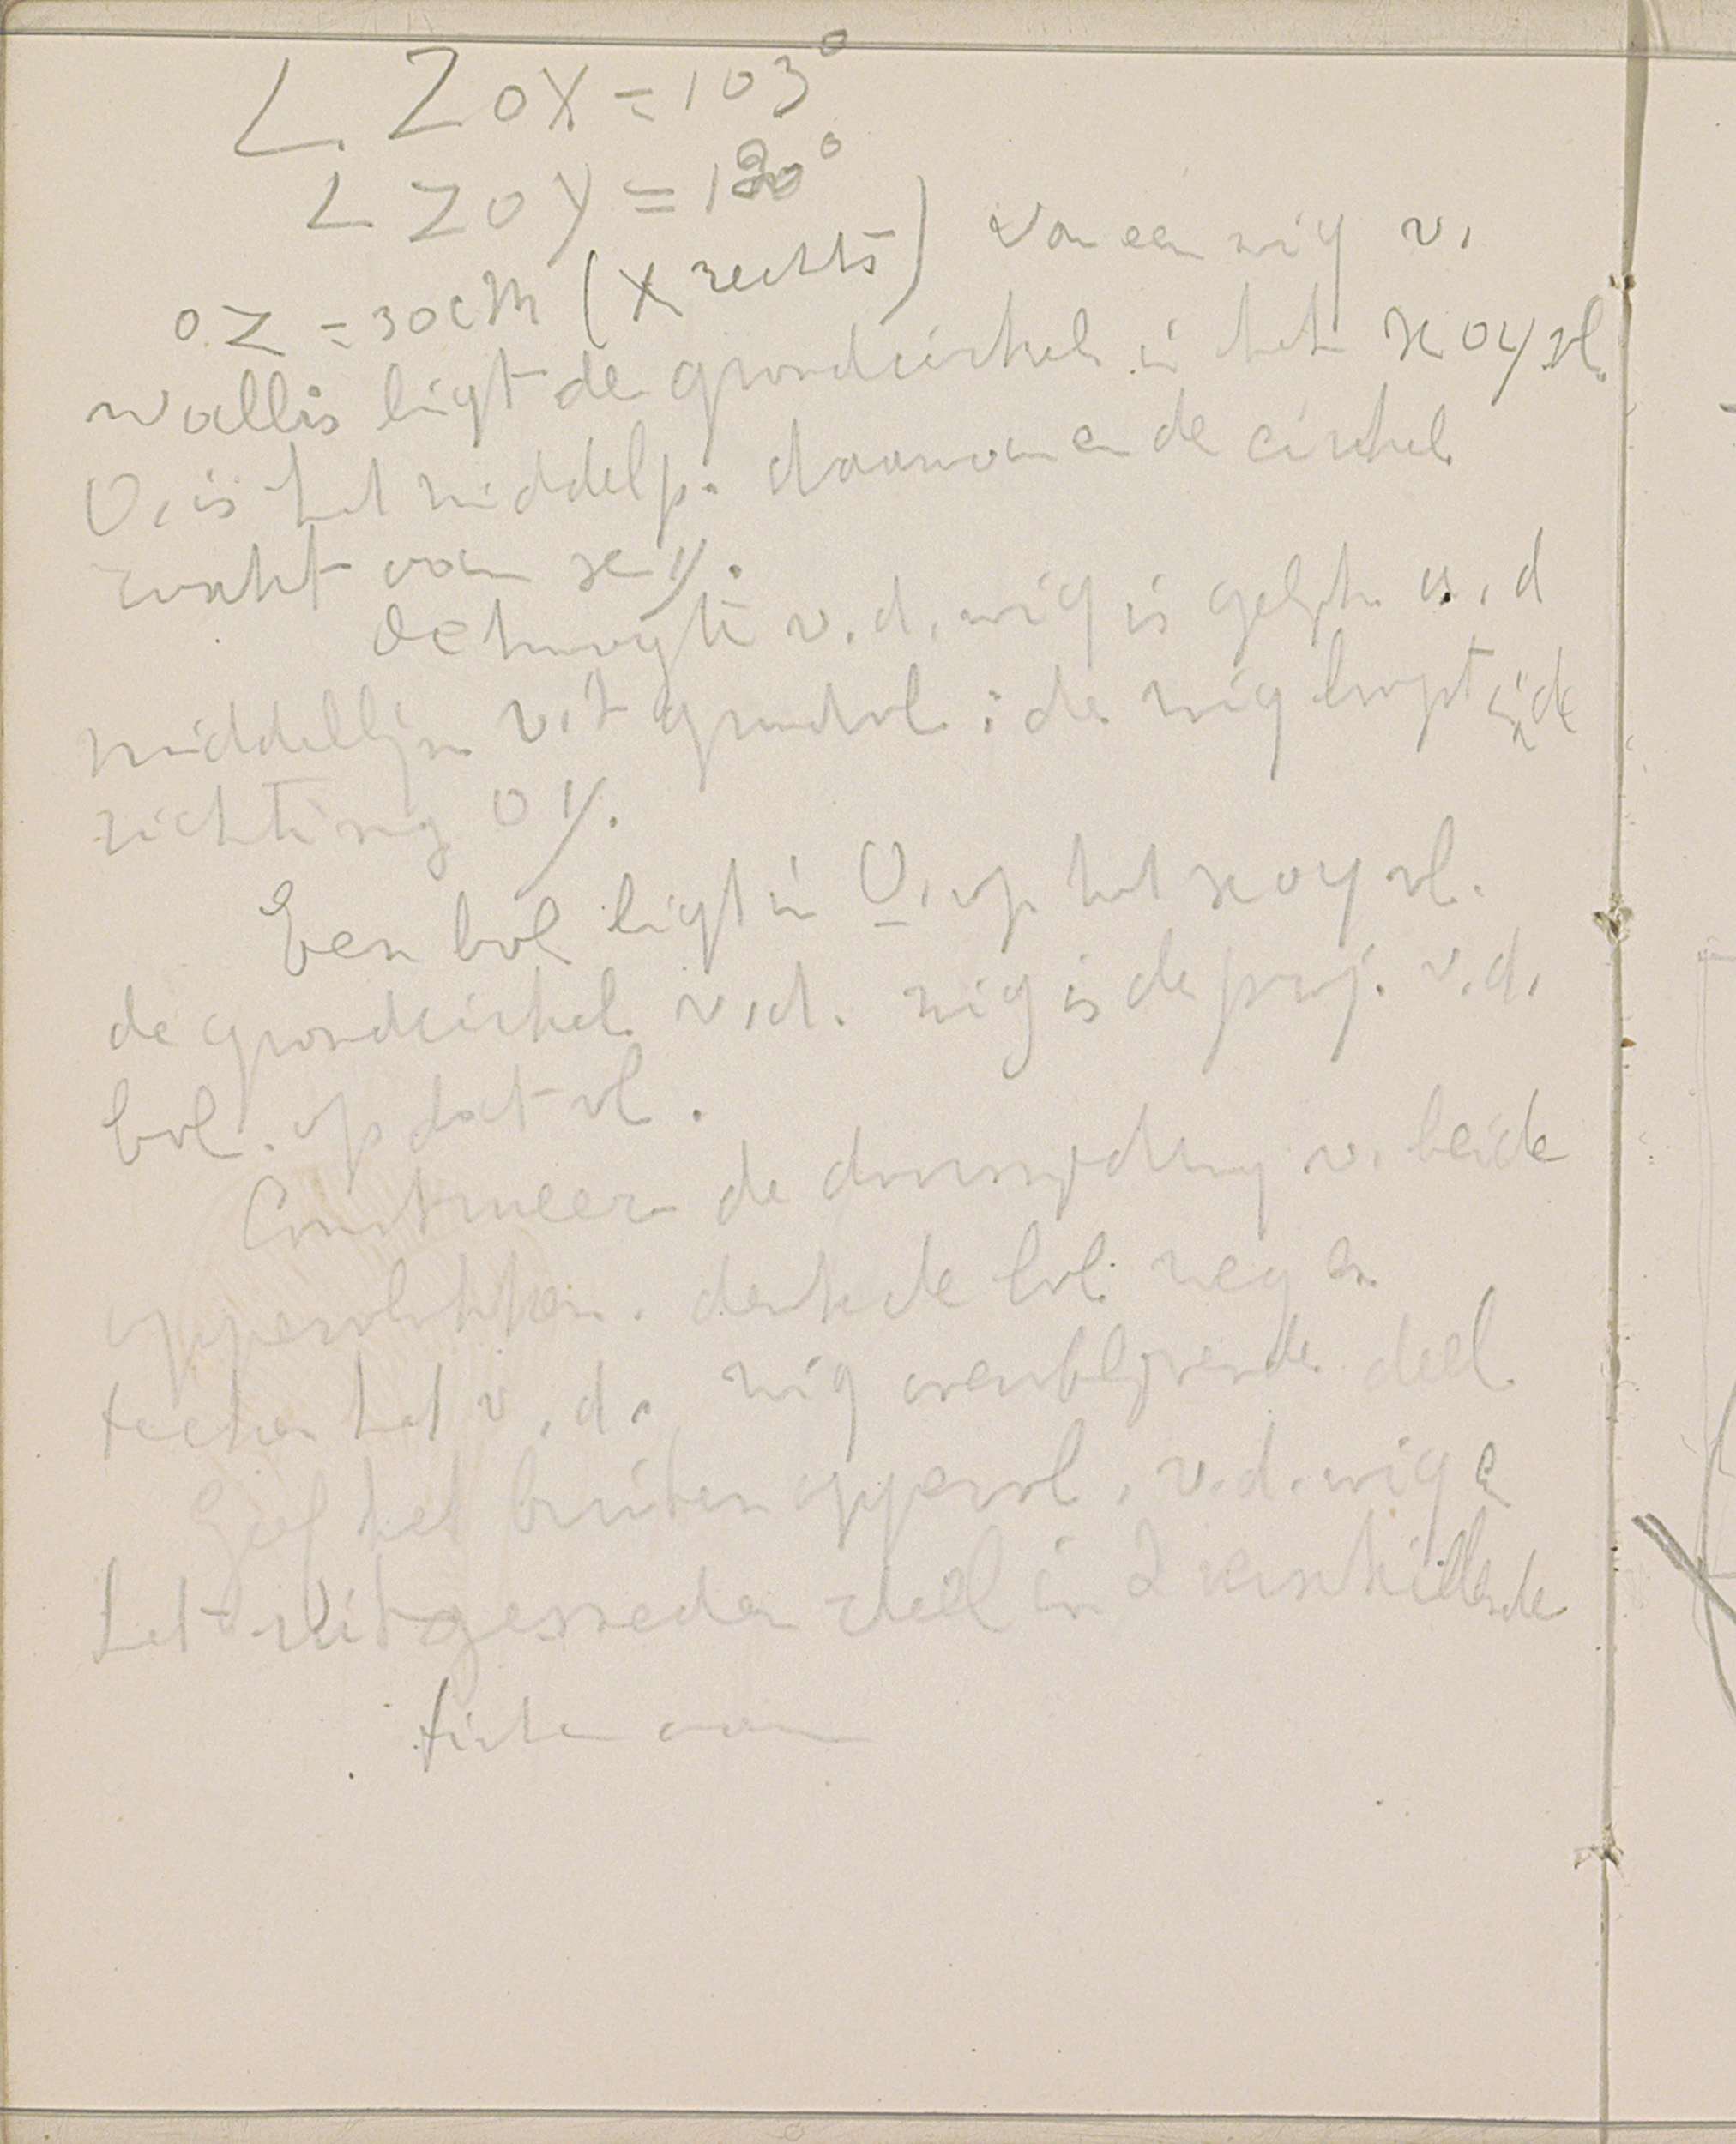 ∠ ZOX = 103°
∠ ZOY = 120°
OZ = 30 cM (X rechts) Van een wig v.
Wallis ligt de grondcirkel in het xoy vl.
O, is het middelp. daarvan en de cirkel
raakt van x en y.
De hoogte v.d. wig is gelijk a.d
middellijn v. 't grondvl. : de wig loopt in de
richting OY.
Een bol ligt in O, op het xoy vl.
de grondcirkel v.d. wig is de proj. v.d.
bol. op dat vl.
Construeer de doorsnijding v. beide
oppervlakken. denk de bol weg en
teeken het v.d. wig overblijvende deel
Geef het buitenoppervl. v.d. wig en
het uitgesneden deel in 2 verschillende
tinten aan